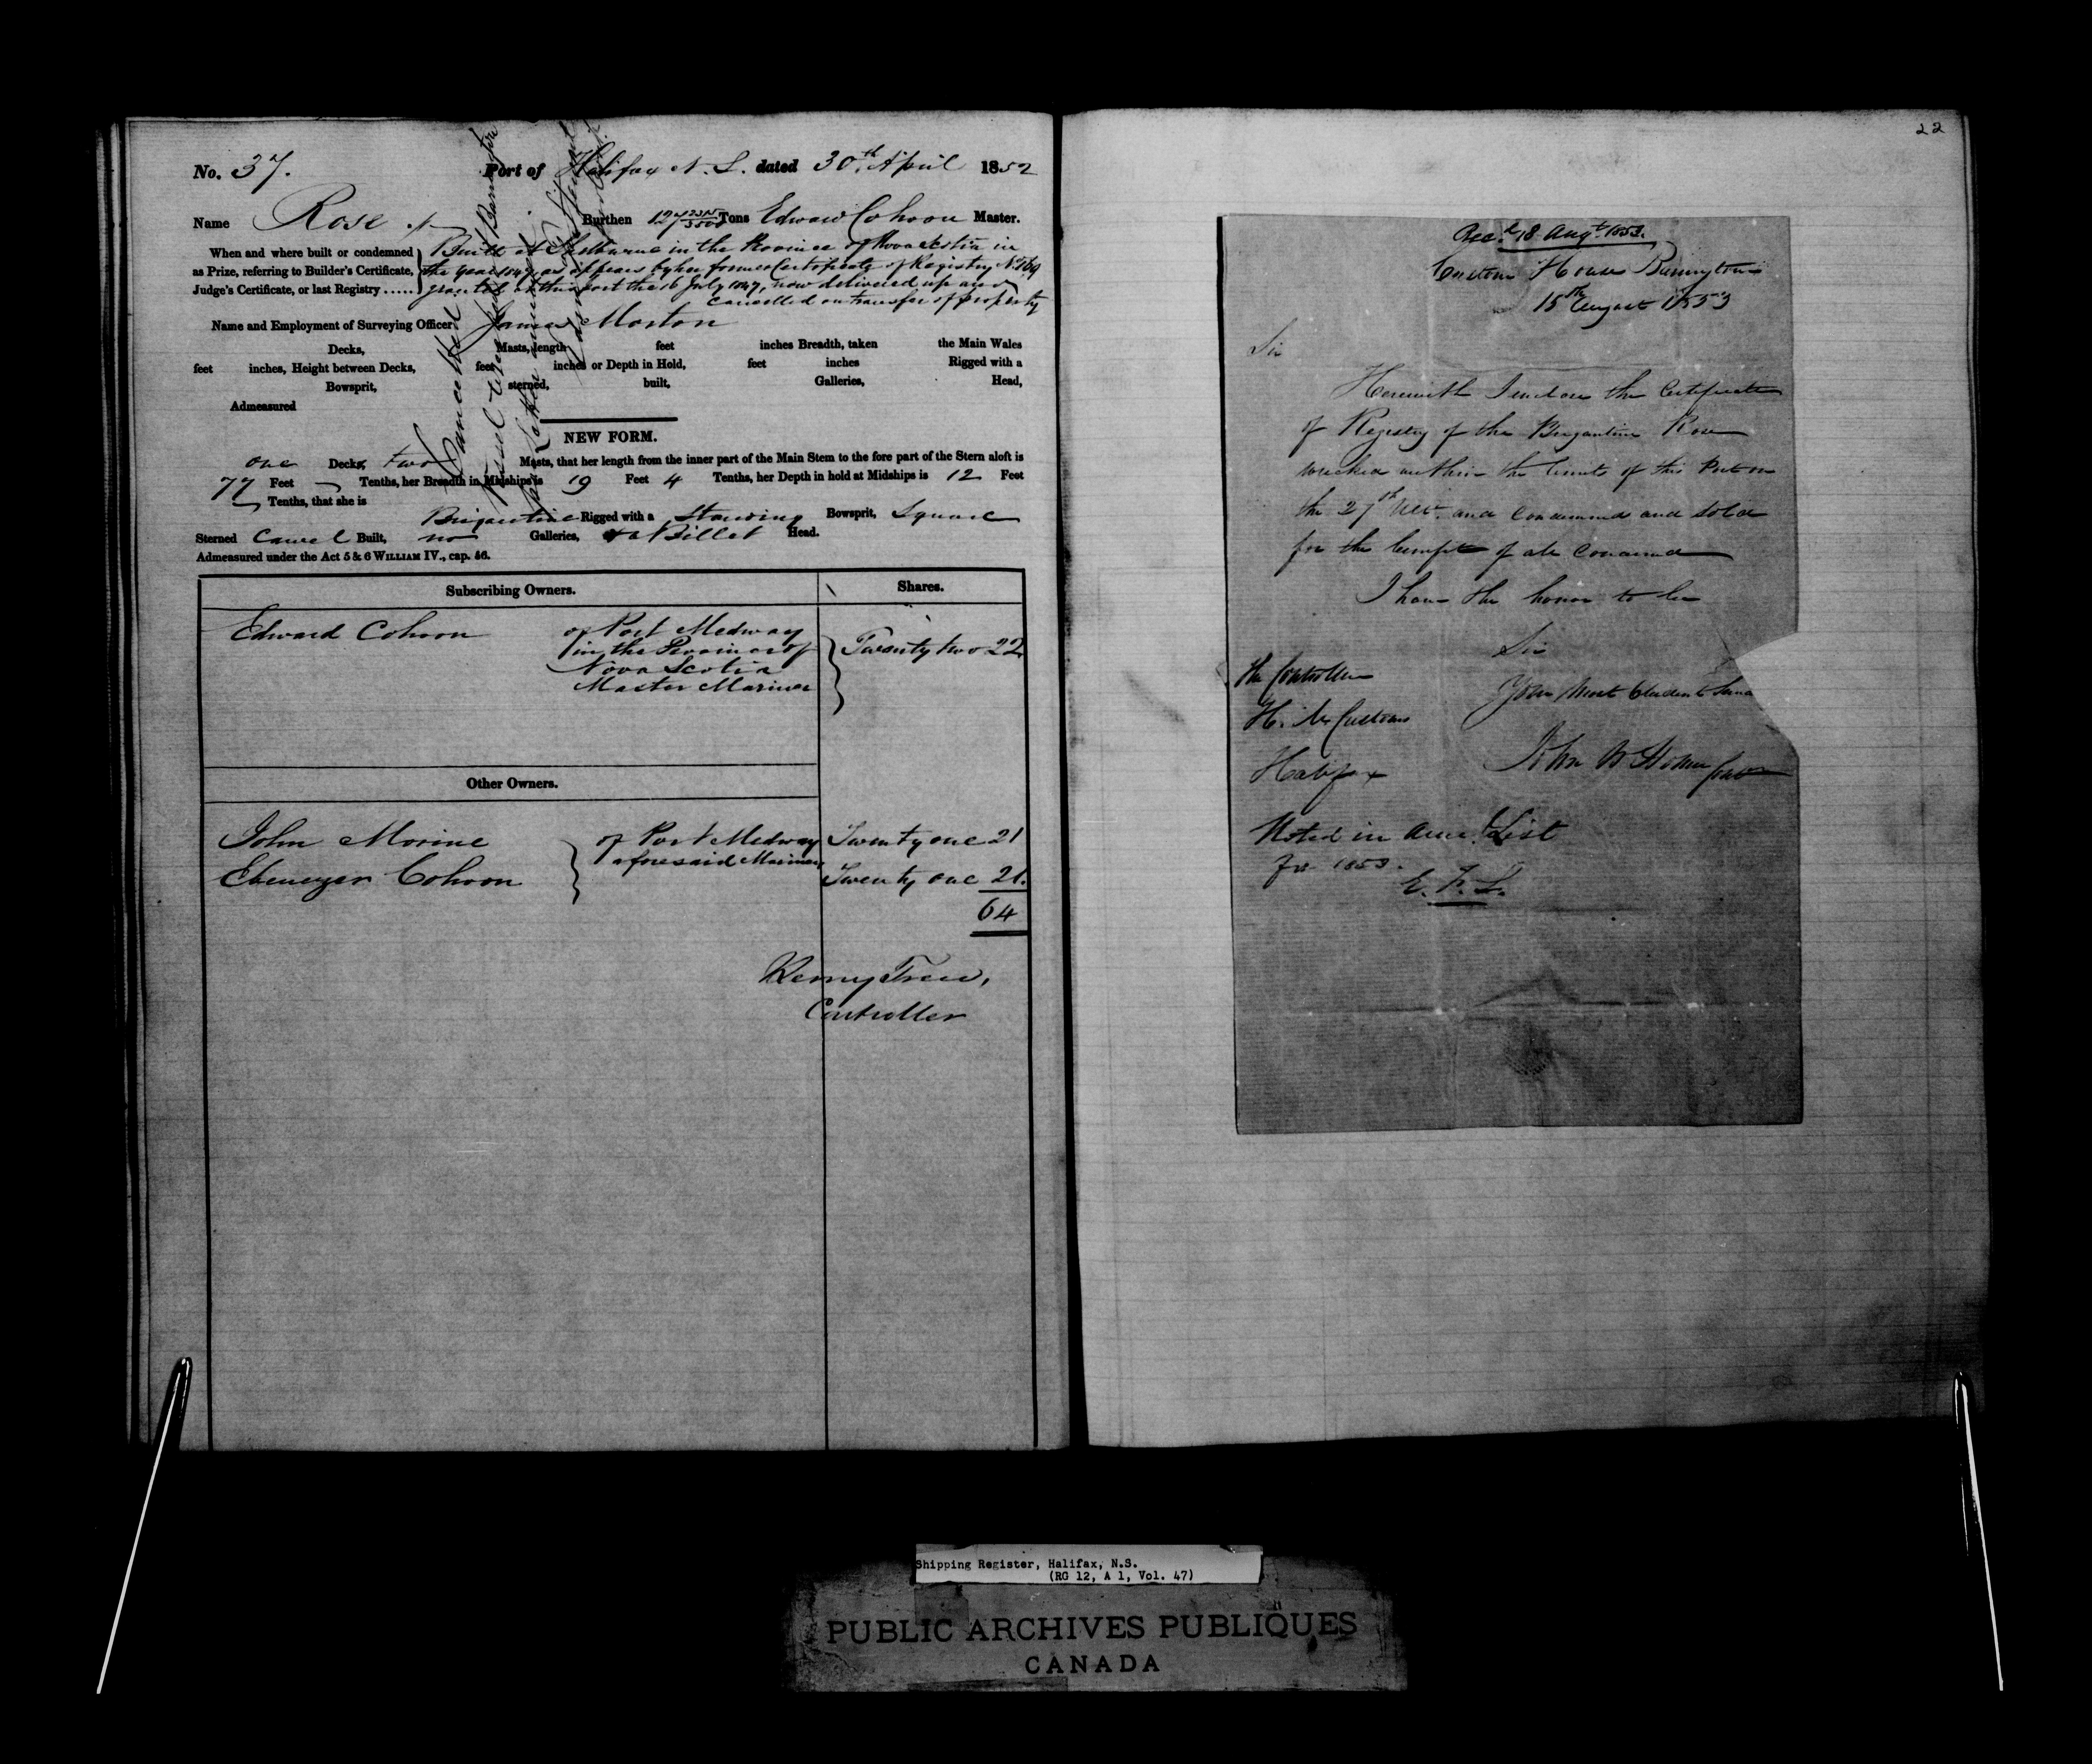 No. 37. Port of Halifax N.S. dated 30th April 1852
Name Rose Burthen 127 Tons Edward Cohoon Master.
When and where built or condemned
as Prize, referring to Builder's Certificate,
Judge's Certificate, or last Registry .....
Built at Shelburne in the Province of Nova Scotia in
the year 1847 as appears by her former Certificate of Registry No
granted at this port the 16 July 1847, now delivered up and
cancelled on transfer of property
Name and Employment of Surveying Officer James Morton
Decks, Masts, length feet inches Breadth, taken the Main Wales
feet inches, Height between Decks, feet inches or Depth in Hold, feet inches Rigged with a
Bowsprit, sterned, built, Galleries, Head,
Admeasured
Cancelled
NEW FORM.
one Decks, two Masts, that her length from the inner part of the Main Stem to the fore part of the Stern aloft is
77 Feet Tenths, her Breadth in Midships is 19 Feet 4 Tenths, her Depth in hold at Midships is 12 Feet
Tenths, that she is
Brigantine Rigged with a Standing Bowsprit, Square
Sterned Carvel Built, no Galleries, & a Billet Head.
Admeasured under the Act 5 & 6 WILLIAM IV., cap. 56.
Subscribing Owners. Shares.
Edward Cohoon of Port Medway
in the Province of
Nova Scotia
Master Mariner
Twenty two 22
Other Owners.
John Morine of Port Medway Twenty one 21
aforesaid Mariners
Ebenezer Cohoon Twenty one 21.
64
Controller
22
Recd 18 Augt 1853.
Custom House Barrington
15th August 1853
Sir
Herewith I enclose the Certificate
of Registry of the Brigantine Rose
wrecked within the limits of this Port on
the 27th and Condemned and Sold
for the benefit of all Concerned
I have the honor to be
Sir
Your Most Obedient Serva
The Controller
H. M. Customs
Halifax
John
Noted in List
for 1853.
Shipping Register, Halifax, N.S.
(RG 12, A 1, Vol. 47)
PUBLIC ARCHIVES PUBLIQUES
CANADA